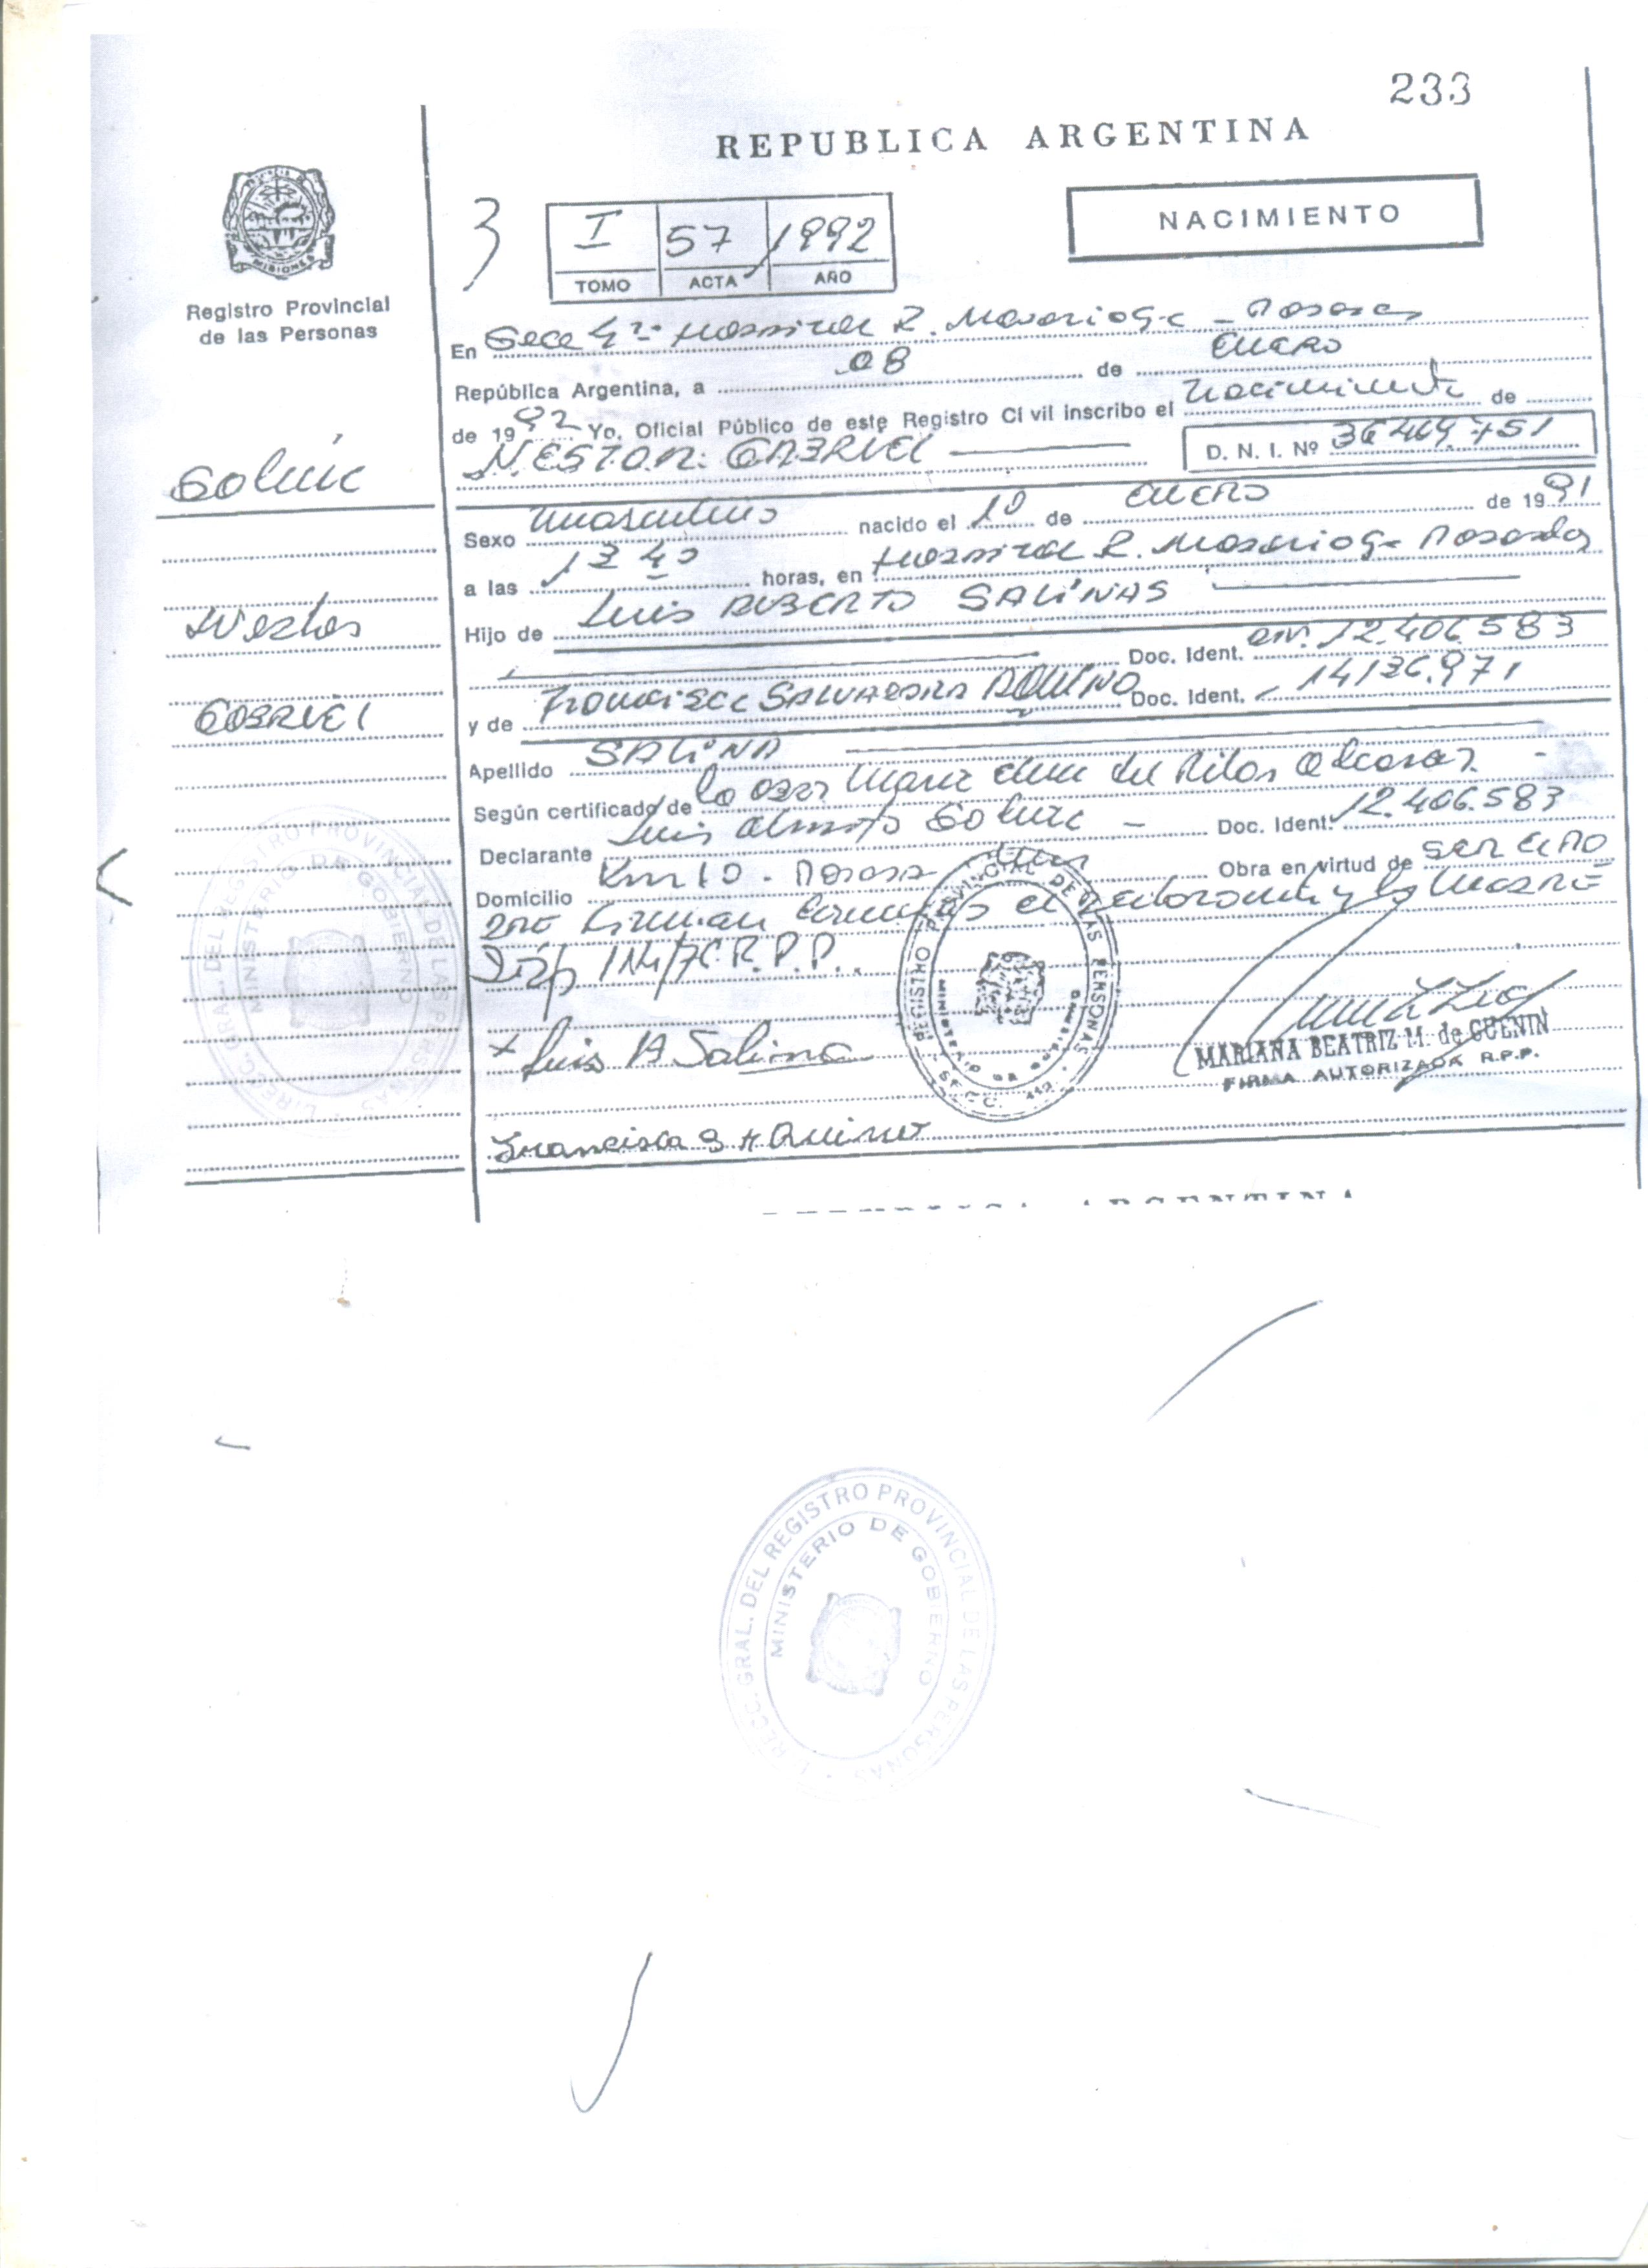 233
REPUBLICA ARGENTINA
MISIONES
Registro Provincial
de las Personas
3
I 57 1992
TOMO ACTA AÑO
NACIMIENTO
En Hospital R. Madariaga - Posadas
República Argentina, a 08 de Enero
de 1992 Yo, Oficial Público de este Registro Civil inscribo el Nacimiento de
NESTOR GABRIEL
D. N. I. Nº
Salina
Nestor
GABRIEL
Sexo Masculino nacido el 10 de ENERO de 1991
a las 13 40 horas, en Hospital R. Madariaga Posadas
Hijo de Luis ALBERTO SALINAS
Doc. Ident. 12.406.583
y de Francisca SALVADORA AQUINO Doc. Ident. 14136.971
Apellido SALINA
Según certificado de la María del
Declarante Luis Alberto Salina Doc. Ident. 12.406.583
Domicilio Km 10 - Posadas Obra en virtud de SER EL PADRE
Firman el declarante y la MADRE
R.P.P.
DIRECC. GRAL. DEL REGISTRO PROVINCIAL DE LAS PERSONAS
MINISTERIO DE GOBIERNO
REGISTRO PROVINCIAL DE LAS PERSONAS
MINISTERIO DE GOBIERNO
x Luis A Salina
MARIANA BEATRIZ M. de GUENIN
FIRMA AUTORIZADA R.P.P.
Francisca S A Quino
DIRECC. GRAL. DEL REGISTRO PROVINCIAL DE LAS PERSONAS
MINISTERIO DE GOBIERNO